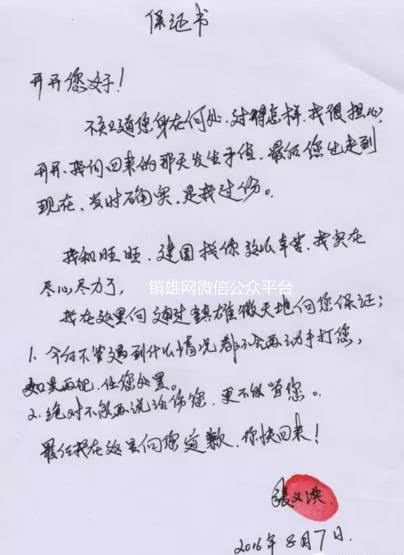 保证书
开开您好！
不知道您身在何处，过得怎样，我很担心
开开，我们回来的那天发生争值，最后您出走到
现在，当时确实是我过份。
我和旺旺，建国找你这么辛苦，我实在
尽心尽力了，
镇雄网微信公众平台
我在这里向通过镇雄微天地向您保证；
1. 今后不管遇到什么情况都不会再动手打您，
如果再犯，任您处置。
2. 绝对不能再说话伤您，更不能骂您。
最后我在这里向您道歉，你快回来！
张义洪
2016年8月7日.